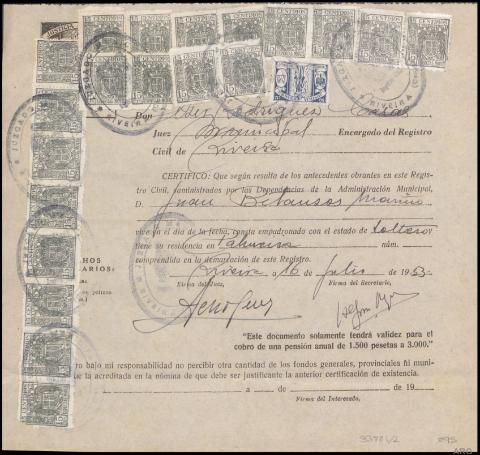 15 CENTIMOS
JUSTICIA
JUZGADO
RIVEIRA
Don
Juez Municipal Encargado del Registro
Civil de Riveira
CERTIFICO: Que según resulta de los antecedentes obrantes en este Regis-
tro Civil, suministrados por las Dependencias de la Administración Municipal,
D. Juan Betanzos Mariño
vive en el día de la fecha, consta empadronado con el estado de Soltero
y tiene su residencia en Palmeira núm.
comprendida en la demarcación de este Registro.
Riveira a 16 de Julio de 1953.
Firma del Juez, Firma del Secretario,
HOS
ARIOS:
"Este documento solamente tendrá validez para el
cobro de una pensión anual de 1.500 pesetas a 3.000."
ro bajo mi responsabilidad no percibir otra cantidad de los fondos generales, provinciales ñi muni-
que la acreditada en la nómina de que debe ser justificante la anterior certificación de existencia.
a de de 19
Firma del Interesado.